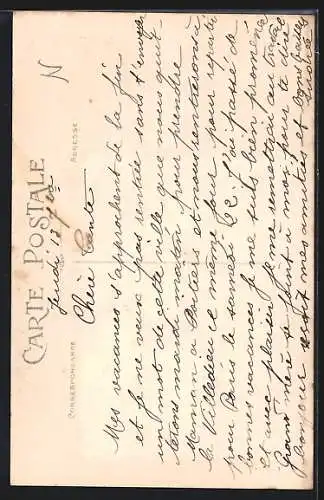 CARTE POSTALE
CORRESPONDANCE
ADRESSE
Jeudi 12
Chère Tante
Mes vacances s'approchent de la fin
et je ne veux pas rentrée sans t'envoyer
un mot de cette ville que nous quit-
terons mardi matin pour prendre
Maman à Poitiers et nous rentrerons
à Villedieu le même jour pour repartir
pour Paris le samedi 22. J'ai passé de
bonnes vacances je me suis bien promenée
et avec plaisir je me remettrai au travail
Grand'mère se joint à moi pour te dire
bonjour mes amitiés et bons baisers